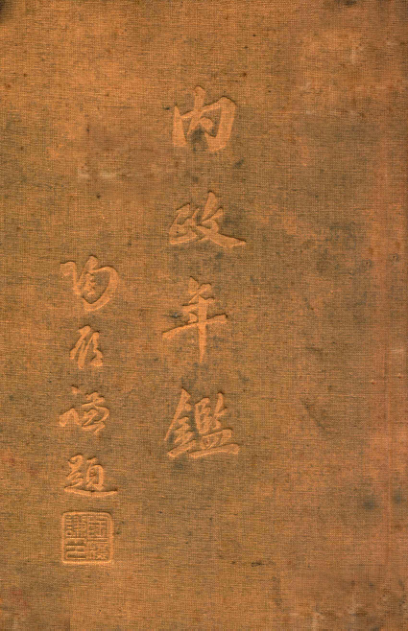 内政年鑑
陶履謙題